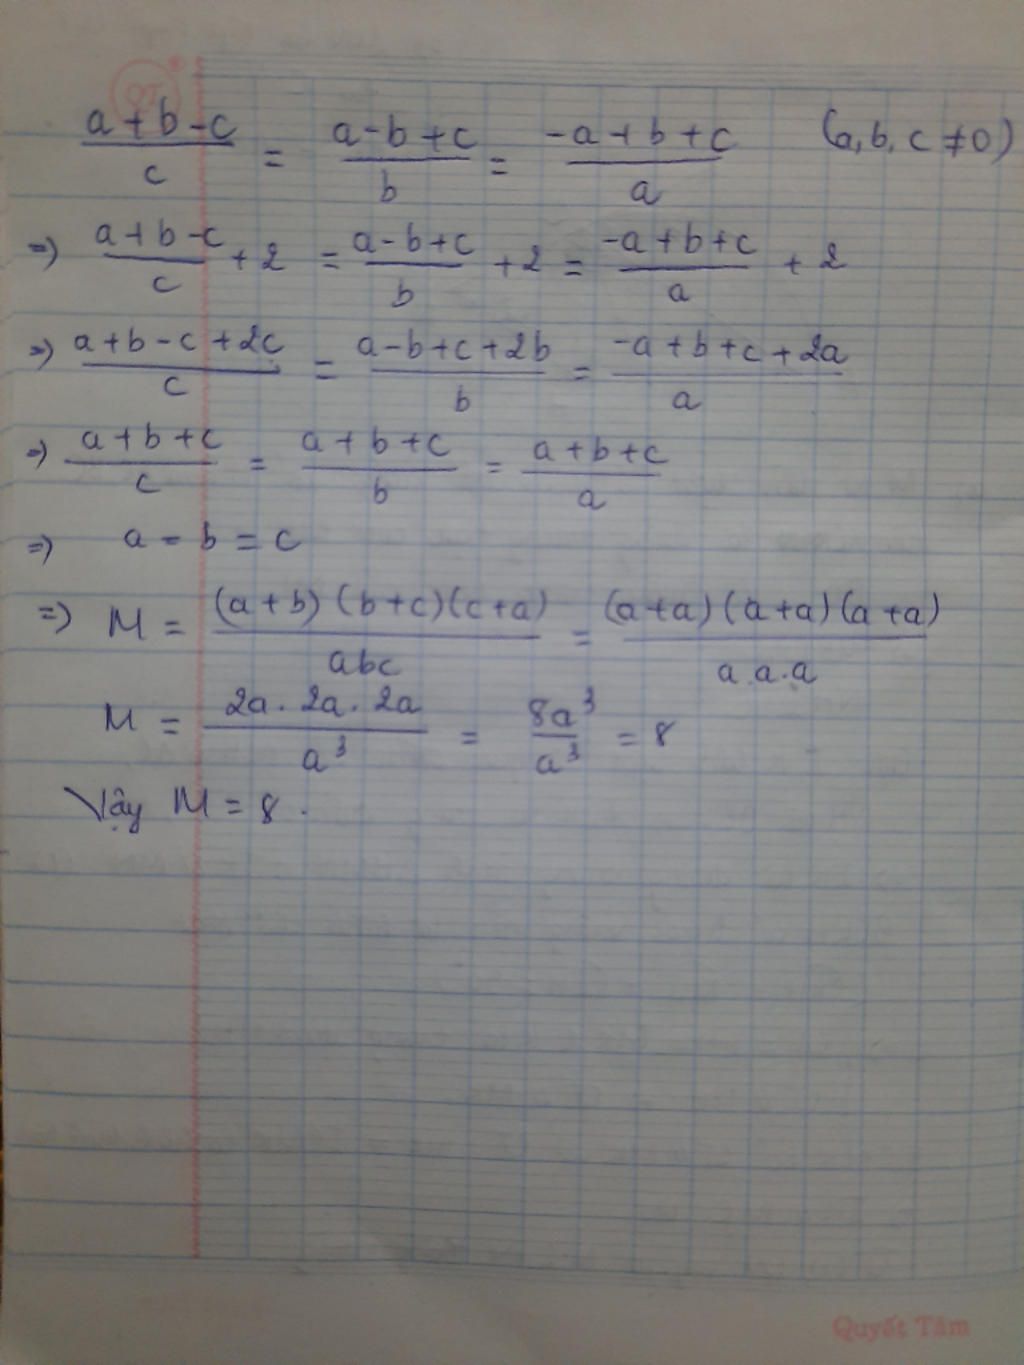 QT
(a+b-c)/c = (a-b+c)/b = (-a+b+c)/a (a, b, c ≠ 0)
=> (a+b-c)/c + 2 = (a-b+c)/b + 2 = (-a+b+c)/a + 2
=> (a+b-c+2c)/c = (a-b+c+2b)/b = (-a+b+c+2a)/a
=> (a+b+c)/c = (a+b+c)/b = (a+b+c)/a
=> a = b = c
=> M = (a+b)(b+c)(c+a)/abc = (a+a)(a+a)(a+a)/a.a.a
M = 2a.2a.2a/a³ = 8a³/a³ = 8
Vậy M = 8.
Quyết Tâm